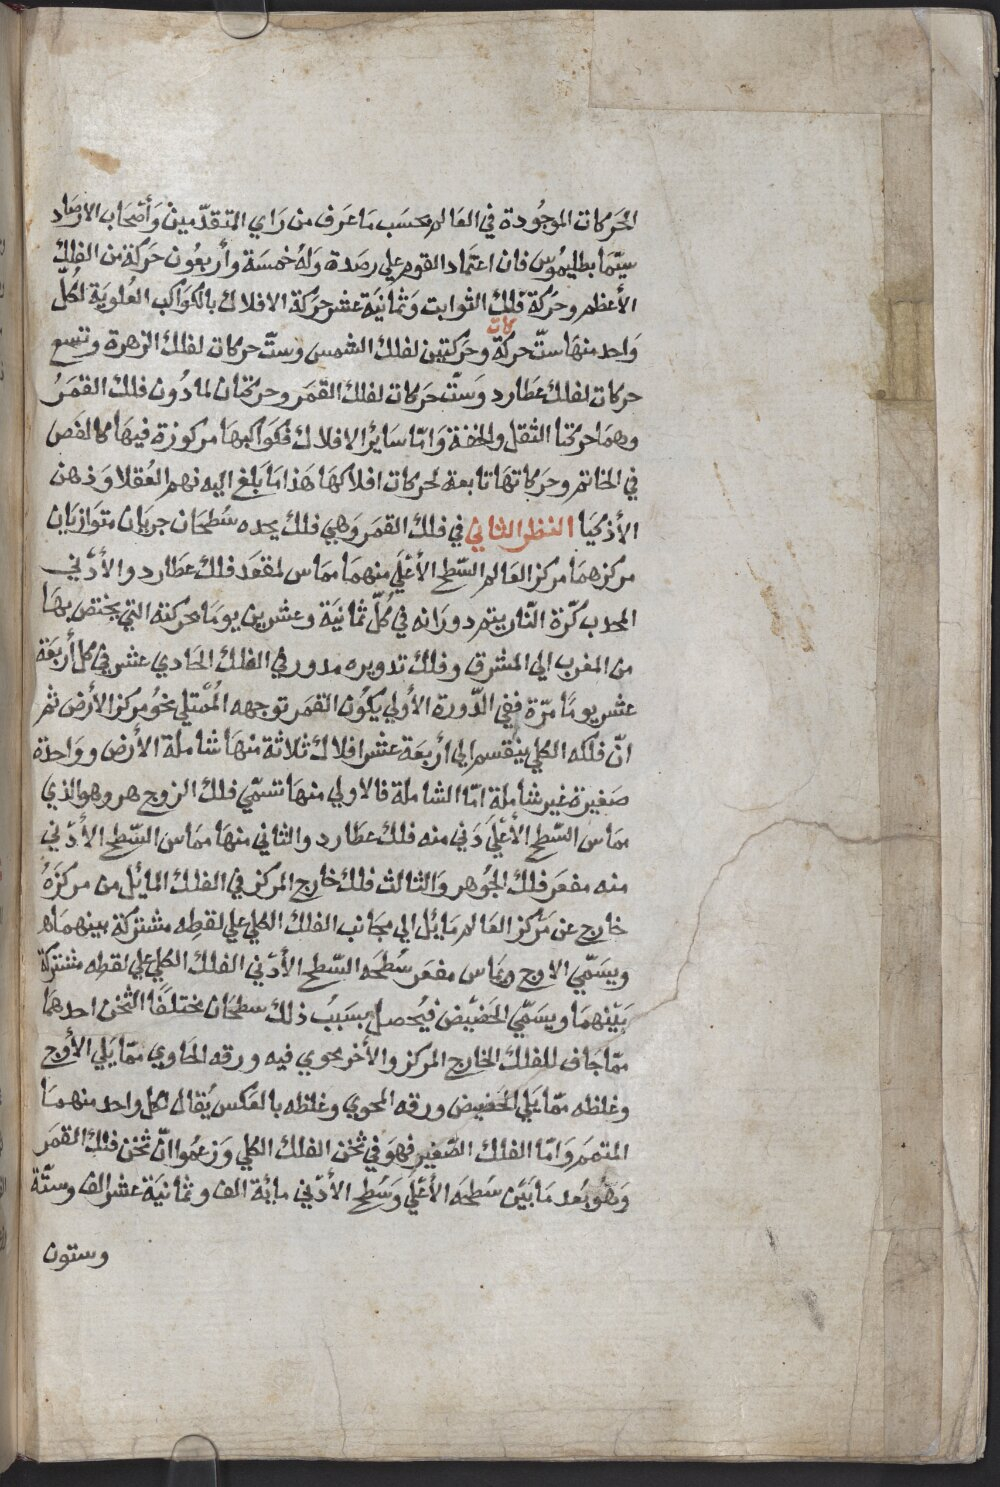 الحَركات الموجُودة في العَالم بحسَب مَا عَرف من رَاي المتقدّمين وَأصْحَاب الارصَاد
سيّما بطليموُس فان اعتماد القوم علي رصَدة وَلهُ خمسَة وأربعُون حَركة من الفلك
الأعظم وحَركة فلك الثوابت وَثمانيَة عشر حَركة الافلاك بالكوَاكب العُلويَة لكُلّ
كات
وَاحد منهَا ستّ حركة وحَركتين لفلك الشمس وستّ حركات لفلك الزهرة وتسع
حركات لفلك عطارد وَستّ حَركات لفلك القمَر وحركتان لما دُون فلك القمَرُ
وهمَا حركتا الثقل والخفة وَامّا سَايرُ الافلاك فكوَاكبهَا مركوزة فيهَا كالفص
في الخاتم وحَركاتهَا تابعة لحركات افلاكهَا هَذا مَا بَلغ اليه فهم العُقلا وَذهن
الأذكيَا النظر الثاني في فلك القمَر وَهي فلك يحده سَطحَان جريَان متوَازيَان
مركزهمَا مركز العَالم السّطح الأعْلَي منهمَا ممَاس لمقعَد فلك عطارد والأدْني
المحدب كرّة النّار يتم دورَانه في كُلّ ثمَانيَة وعشرين يومَا بحركته التي يختص بهَا
من المغرب الي المشرق وفلك تدويره مدور في الفلك الحَادي عشر في كل أربعَة
عشر يومًا مرّة ففي الدّورة الأولي يكوُن القمَر توجهه المُمْتلي نحوُ مركز الأرض ثم
انّ فلكه الكلي ينقسم الي أربعَة عشر افلاك ثلاثة منهَا شاملة الأرض وَوَاحدة
صَغيرة غير شاملة امّا الشاملة فالاولي منهَا تسَمّي فلك الزوج هر وهو الذي
ممَاس السّطح الأعْلَي دَني منه فلك عطارد والثاني منهَا ممَاس السّطح الأدْني
منه مقعَر فلك الجُوهر وَالثالث فلك خَارج المركز في الفلك المايُل من مركزهُ
خارج عن مَركز العَالم مَايُل الي مجَانب الفلك الكلي علي لقطِه مشتركة بينهمَاه
ويسَمّي الاوج ويمَاس مقعَر سُطحَه السّطح الأدْني الفلك الكلي علي لقطه مشتركة
بيْنهمَا ويسَمّي الحَضيْض فيُحصل بسَبَبُ ذلك سطحَان مختلفًا الثخن احدهمَا
ممّا جَاف للفلك الخارج المركز والأخر يحوي فيه ورقه الحَاوي ممّا يَلي الأوج
وغلظه ممّا يَلي الحَضيض ورقه المحوي وغلظه بالعَكس يُقال لكل واحد منهمَا
المتممَ وَامّا الفلك الصّغير فهوَ في ثخن الفلك الكلي وَزعمُوا انّ ثخن فلك القمَر
وَهوَ بُعد مَا بَيْن سَطحَه الأعْلَي وَسَطح الأدْني مايُة الف وثمانيَة عشر الف وستّة
وستون